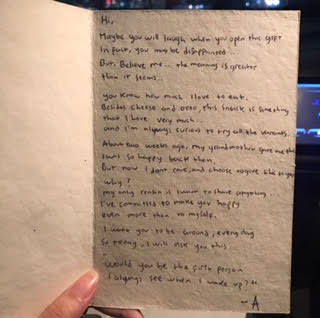 Hi,
Maybe you will laugh when you open this gift
In fact, you may be disappointed...
But, Believe me... the meaning is greater
than it seems...
You know how much I love to eat.
Besides cheese and oreo, this snack is something
that I love very much...
and I'm always curious to try all the variants.
About two weeks ago, my grandmother gave me this
I was so happy back then.
But now I don't care, and choose to give it to you
why?
my only reason is I want to share everything...
I've committed to make you happy
even more than to myself.
I want you to be around, everyday
so today, I will ask you this
"
Would you be the first person
I always see when I wake up?"
- A